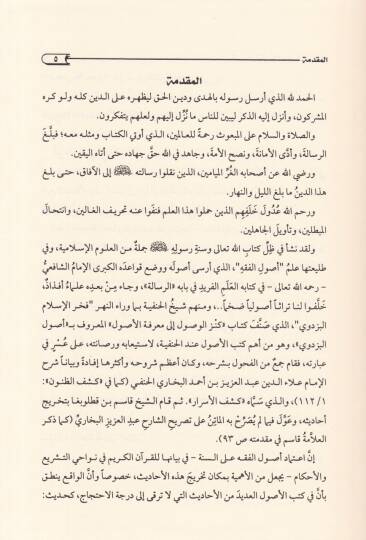 المقدمة ٥
المقدمة
الحمد لله الذي أرسل رسوله بالهدى ودين الحق ليظهره على الدين كله ولو كره
المشركون، وأنزل إليه الذكر ليبين للناس ما نُزِّل إليهم ولعلهم يتفكرون.
والصلاة والسلام على المبعوث رحمة للعالمين، الذي أوتي الكتاب ومثله معه؛ فبلَّغَ
الرسالةَ، وأدَّى الأمانةَ، ونصح الأمةَ، وجاهد في الله حقَّ جهاده حتى أتاه اليقين.
ورضي الله عن أصحابه الغُرِّ الميامين، الذين نقلوا رسالته ﷺ إلى الآفاق، حتى بلغ
هذا الدينُ ما بلغ الليل والنهار.
ورحم الله عُدُولَ خَلَفِهِم الذين حملوا هذا العلم فنَفَوا عنه تحريف الغالين، وانتحالَ
المبطلين، وتأويلَ الجاهلين.
ولقد نشأ في ظِلِّ كتابِ الله تعالى وسنةِ رسولِه ﷺ جملةٌ من العلوم الإسلامية، وفي
طليعتها علمُ "أصولِ الفقهِ"، الذي أرسى أصولَه ووضع قواعدَه الكبرى الإمامُ الشافعيُّ
- رحمه الله تعالى - في كتابه العَلَمِ الفريدِ في بابه «الرسالة»، وجاء مِنْ بعدِه علماءُ أفذاذٌ،
خلَّفوا لنا تراثاً أصولياً ضخماً..، ومنهم شيخُ الحنفية بما وراء النهر "فخر الإسلام
البزدوي"، الذي صَنَّفَ كتاب «كنز الوصول إلى معرفة الأصول» المعروف بـ«أصول
البزدوي»، وهو من أهم كتب الأصول عند الحنفية، لاستيعابه ورصانته، على عُسْرٍ في
عبارته، فقام جمعٌ من الفحول بشرحه، وكان أعظم شروحه وأكثرها إفادةً وبياناً شرح
الإمام علاء الدين عبد العزيز بن أحمد البخاري الحنفي (كما في «كشف الظنون»:
١/ ١١٢)، والذي سَمَّاه «كشف الأسرار». ثم قام الشيخ قاسم بن قطلوبغا بتخريج
أحاديثه، وعَوَّلَ فيما لم يُصَرِّحْ به الماتِنُ على تصريحِ الشارحِ عبدِ العزيزِ البخاريِّ (كما ذكر
العلامةُ قاسم في مقدمته ص ٩٣).
إنَّ اعتماد أصول الفقه على السنة - في بيانها للقرآن الكريم في نواحي التشريع
والأحكام - يجعل من الأهمية بمكان تخريجَ هذه الأحاديث، خصوصاً وأنَّ الواقع ينطق
بأنَّ في كتب الأصول العديدَ من الأحاديث التي لا ترقى إلى درجة الاحتجاج، كحديث: